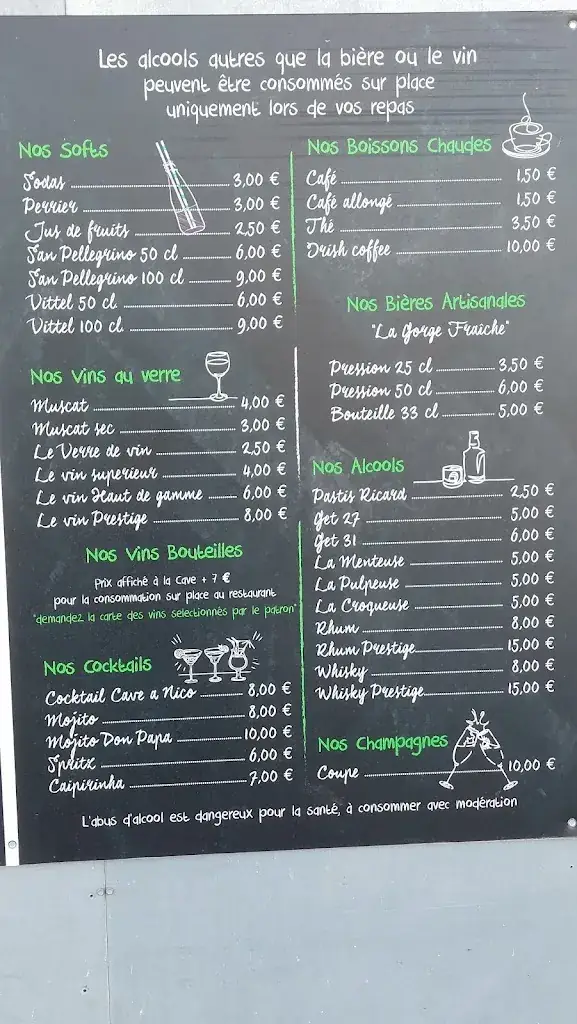 Les alcools autres que la bière ou le vin
peuvent être consommés sur place
uniquement lors de vos repas
Nos Softs
Sodas 3,00 €
Perrier 3,00 €
Jus de fruits 2,50 €
San Pellegrino 50 cl 6,00 €
San Pellegrino 100 cl 9,00 €
Vittel 50 cl 6,00 €
Vittel 100 cl 9,00 €
Nos Vins au verre
Muscat 4,00 €
Muscat sec 3,00 €
Le Verre de vin 2,50 €
Le vin superieur 4,00 €
Le vin Haut de gamme 6,00 €
Le vin Prestige 8,00 €
Nos Vins Bouteilles
Prix affiché à la Cave + 7 €
pour la consommation sur place au restaurant
"demandez la carte des vins selectionnés par le patron"
Nos Cocktails
Cocktail Cave a Nico 8,00 €
Mojito 8,00 €
Mojito Don Papa 10,00 €
Spritz 6,00 €
Caipirinha 7,00 €
Nos Boissons Chaudes
Café 1,50 €
Café allongé 1,50 €
Thé 3,50 €
Irish coffee 10,00 €
Nos Bières Artisanales
"La Gorge Fraîche"
Pression 25 cl 3,50 €
Pression 50 cl 6,00 €
Bouteille 33 cl 5,00 €
Nos Alcools
Pastis Ricard 2,50 €
Get 27 5,00 €
Get 31 6,00 €
La Menteuse 5,00 €
La Pulpeuse 5,00 €
La Croqueuse 5,00 €
Rhum 8,00 €
Rhum Prestige 15,00 €
Whisky 8,00 €
Whisky Prestige 15,00 €
Nos Champagnes
Coupe 10,00 €
L'abus d'alcool est dangereux pour la santé, à consommer avec modération